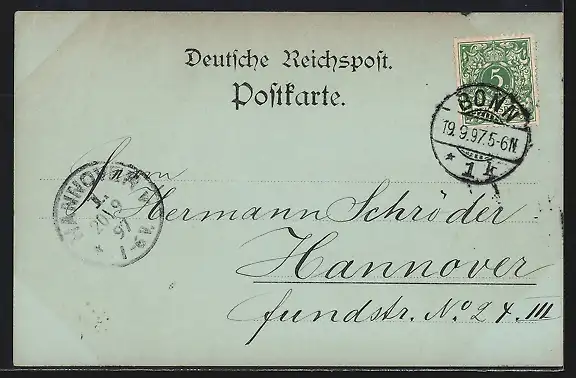 Deutsche Reichspost.
Postkarte.
5
BONN
19.9.97.5-6N.
* 1 k
HANNOVER
1.
20/9
97
Herrn
Hermann Schröder
Hannover
fundstr. No 24. III